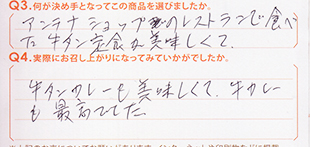 Q3.何が決め手となってこの商品を選びましたか。
アンテナショップのレストランで食べ
た牛タン定食が美味しくて.
Q4.実際にお召し上がりになってみていかがでしたか。
牛タンカレーも美味しくて.牛カレー
も最高でした